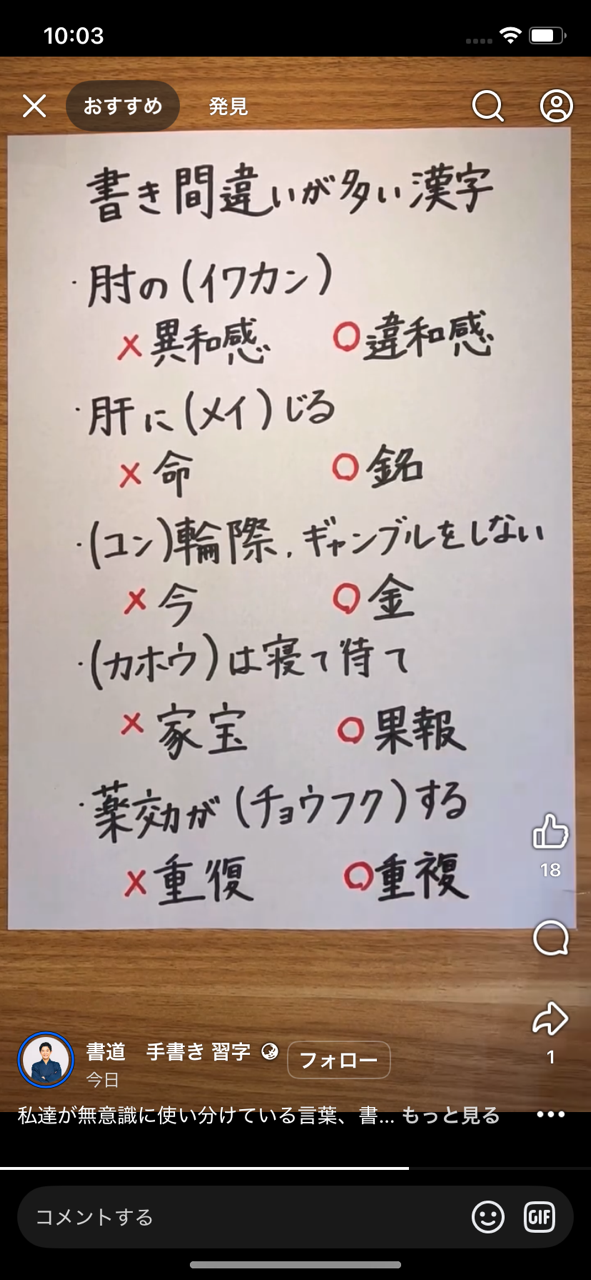 10:03
おすすめ 発見
書き間違いが多い漢字
・肘の(イワカン)
×異和感 ○違和感
・肝に(メイ)じる
×命 ○銘
・(コン)輪際、ギャンブルをしない
×今 ○金
・(カホウ)は寝て待て
×家宝 ○果報
・薬効が(チョウフク)する
×重復 ○重複
18
1
書道 手書き 習字 フォロー
今日
私達が無意識に使い分けている言葉、書... もっと見る
コメントする GIF